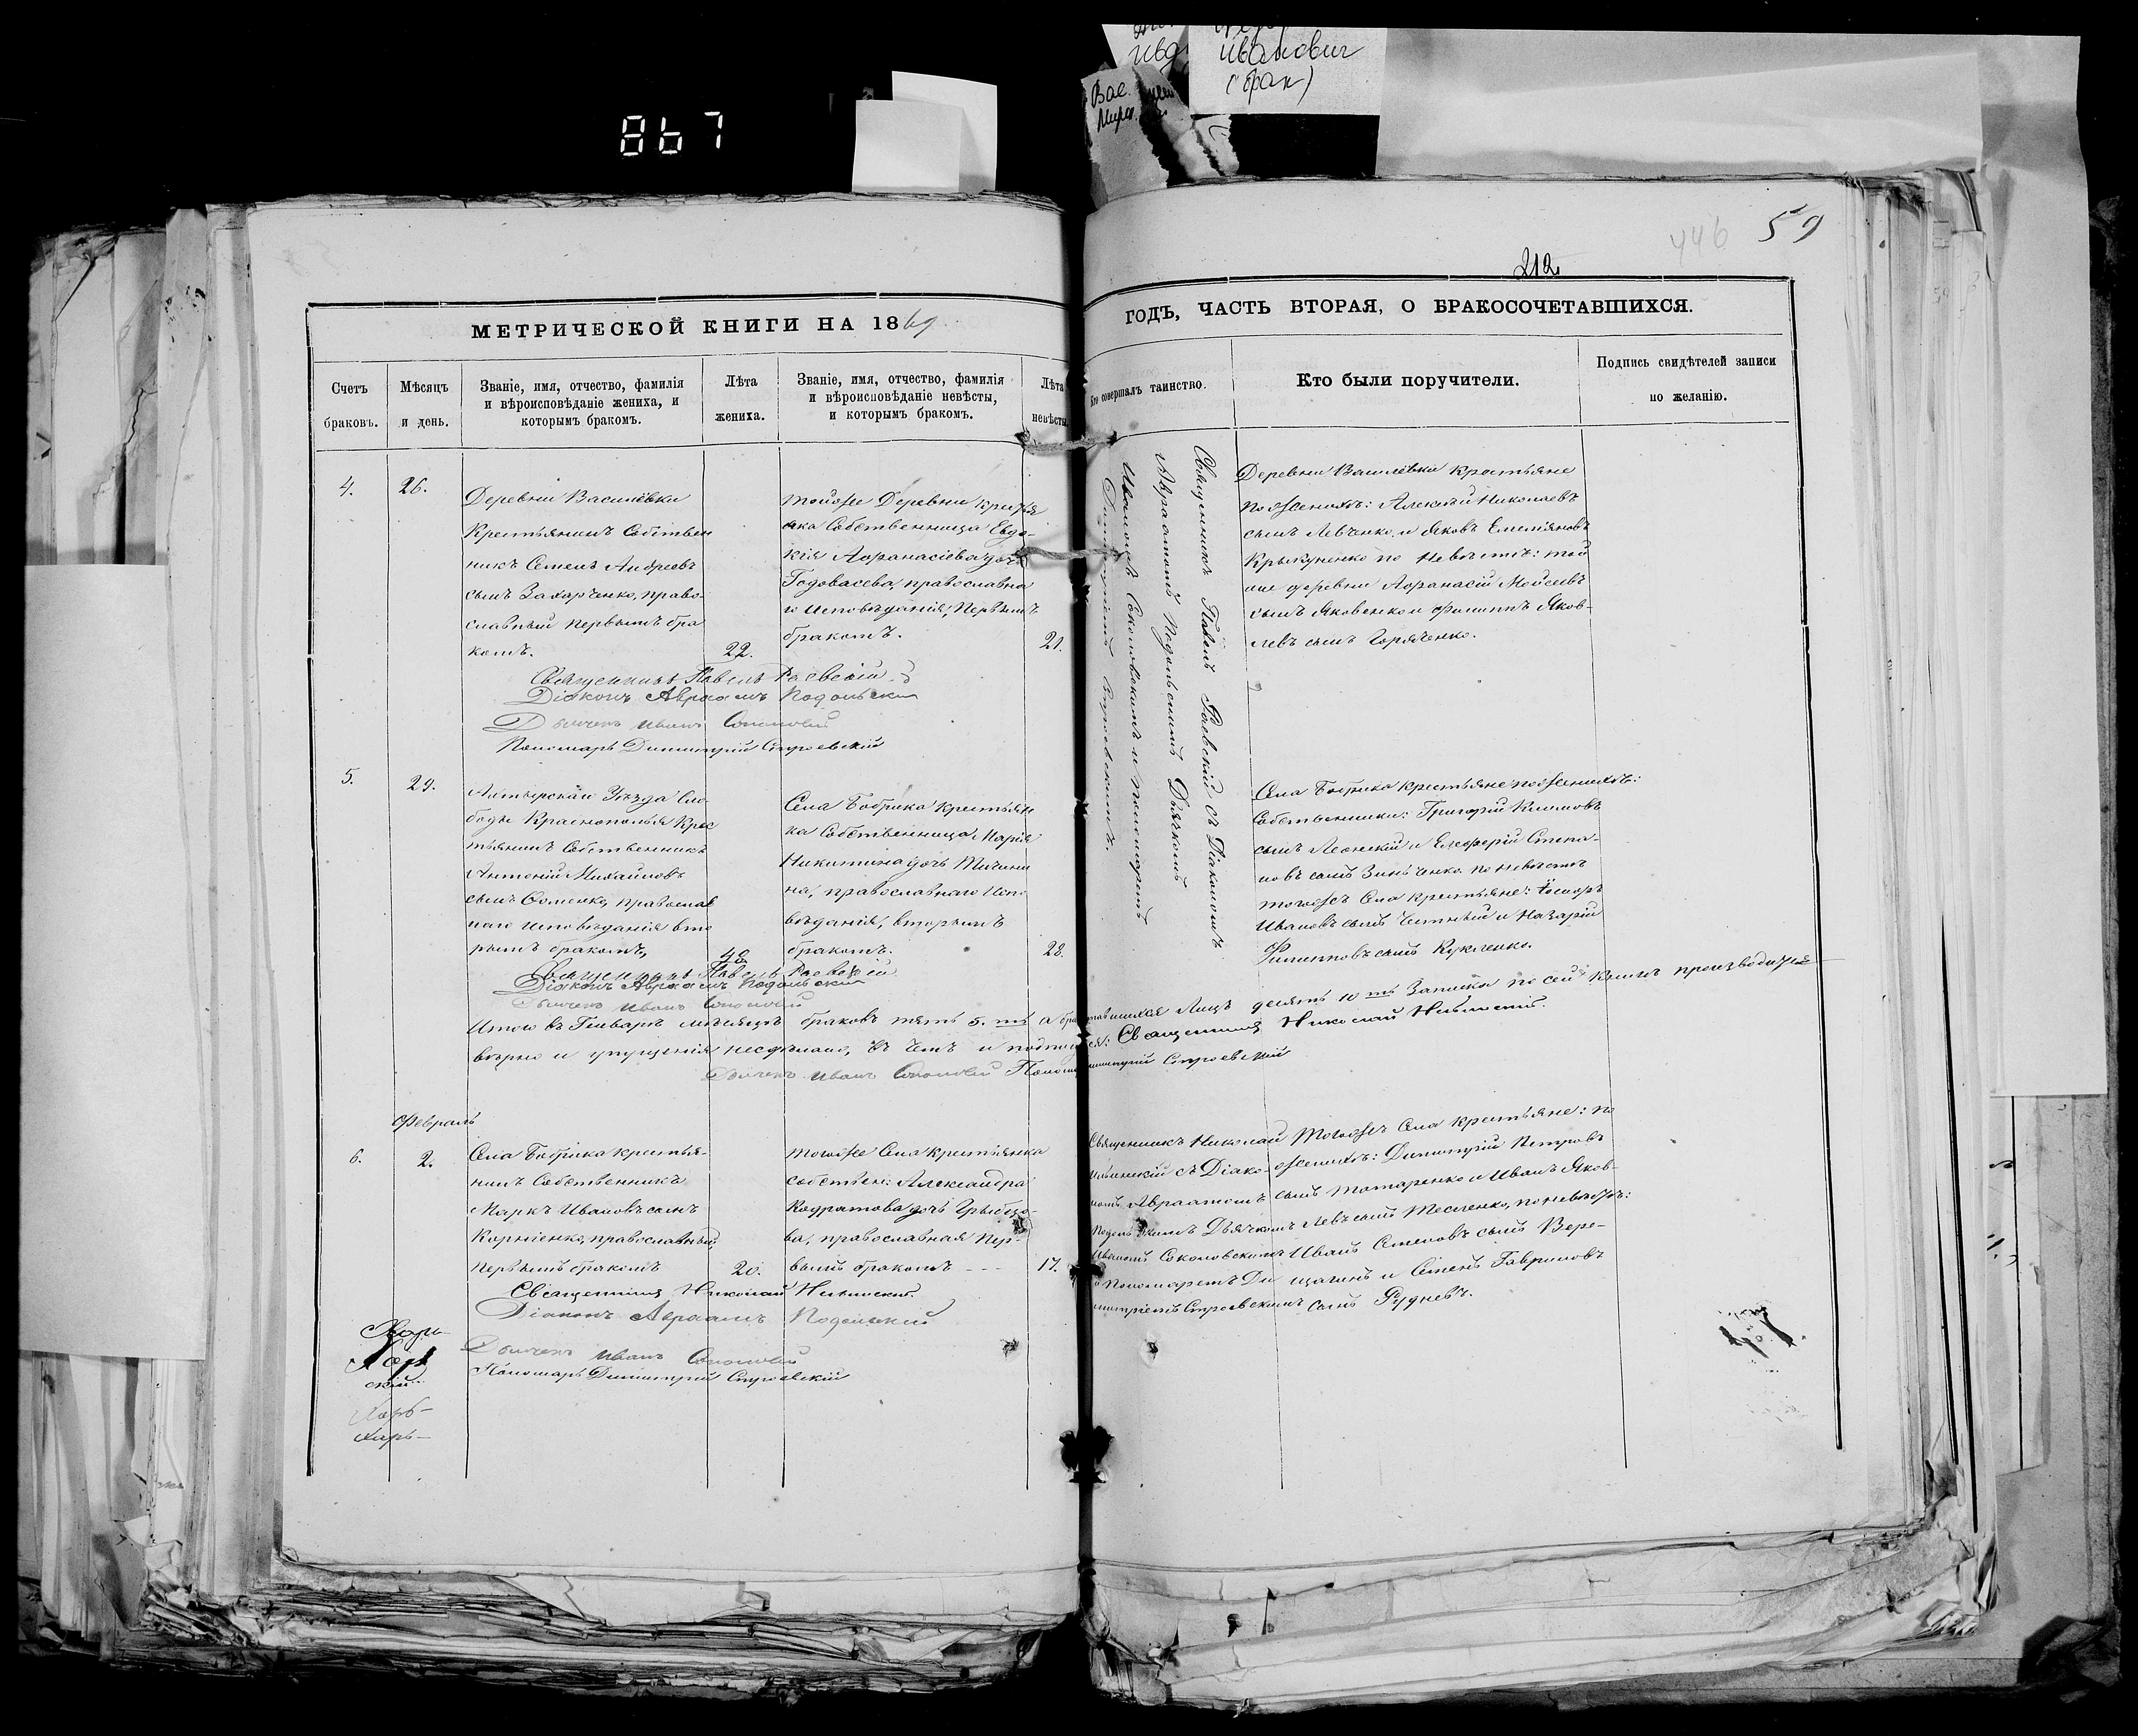 867
Ивановичъ
(брак)
446 59
212
МЕТРИЧЕСКОЙ КНИГИ НА 1869
ГОДЪ, ЧАСТЬ ВТОРАЯ, О БРАКОСОЧЕТАВШИХСЯ.
Счетъ браковъ.
Мѣсяцъ и день.
Званіе, имя, отчество, фамилія
и вѣроисповѣданіе жениха, и
которымъ бракомъ.
Лѣта
жениха.
Званіе, имя, отчество, фамилія
и вѣроисповѣданіе невѣсты,
и которымъ бракомъ.
Лѣта
невѣсты.
Кто совершалъ таинство.
Кто были поручители.
Подпись свидѣтелей записи
по желанію.
4.
26.
Деревни Василевки
Крестьянинъ Собствен
никъ Семенъ Андреевъ
сынъ Захарченко, право-
славный первымъ бра
комъ.
22.
тойже Деревни крестья
нка Собственница Евдо-
кія Аѳанасіева дочь
православна
го исповѣданія, первымъ
бракомъ.
21.
Священникъ Павелъ Раевскій съ Діакономъ
Авраамомъ Подольскимъ Дьячкомъ
Иваномъ Соколовскимъ и Пономаремъ
Димитріемъ Строевскимъ.
Деревни Василевки крестьяне
по женихѣ: Алексѣй Николаевъ
сынъ Левченко, и Яковъ Емельяновъ
по невѣстѣ: той
же деревни Аѳанасій Моисеевъ
сынъ Яковенко и Филиппъ Яков-
левъ сынъ Горяченко.
Священникъ Павелъ Раевскій
Діаконъ Авраамъ Подольскій
Дьячекъ Иванъ
Пономарь Димитрій Строевскій
5.
29.
Ахтырскаго Уѣзда Сло
боды Краснополья Крес
тьянинъ Собственникъ
Антоній Михайловъ
сынъ Ѳоменко, православ
наго исповѣданія вто
рымъ бракомъ,
48.
Села Бобрика крестьян
ка Собственница Марія
Никитина дочь
на, православнаго испо
вѣданія, вторымъ
бракомъ.
28.
Села Бобрика крестьяне по женихѣ:
Собственники: Григорій Климовъ
сынъ и Елеѳерій Степа-
новъ сынъ Зинченко по невѣстѣ
тогоже Села крестьяне:
Ивановъ сынъ и Назарій
Филипповъ сынъ
Священникъ Павелъ Раевскій
Діаконъ Авраамъ Подольскій
Дьячекъ Иванъ
Итого въ Генварѣ мѣсяцѣ браковъ пять 5.
Лицъ десять 10 ть Записка по сей Книгѣ производится
вѣрно и упущенія несдѣлано, въ чемъ и
Священникъ Николай
Дьячекъ Иванъ
Строевскій
Февраль
6.
2.
Села Бобрика крестья-
нинъ Собственникъ
Маркъ Ивановъ сынъ
Корніенко, православный,
первымъ бракомъ
20.
тогоже Села крестьянка
собствен: Александра
Кодратова дочь
ва, православная пер-
вымъ бракомъ - - -
17.
Священникъ Николай
съ Діако-
номъ Авраамомъ
Подольскимъ Дьячкомъ
Иваномъ Соколовскимъ
и Пономаремъ Ди
митріемъ Строевскимъ
Тогоже Села крестьяне: по
женихѣ: Димитрій Петровъ
сынъ Татаренко и Иванъ Яков-
левъ сынъ Тесленко, по невѣстѣ:
Иванъ Семеновъ сынъ Вере-
щагинъ и Семенъ Гавриловъ
сынъ Рудневъ.
Священникъ Николай
Діаконъ Авраамъ Подольскій
Дьячекъ Иванъ
Пономарь Димитрій Строевскій
Харь-
скій
Харь-
Харь-